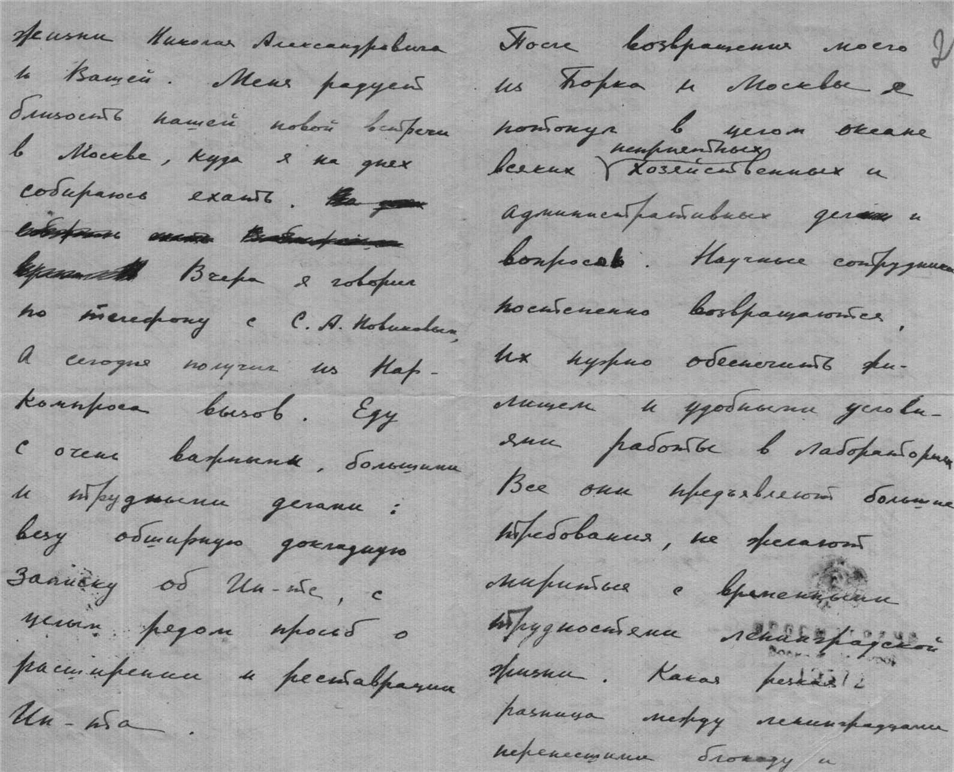 жизни Николая Александровича
и Вашей. Меня радует
близость нашей новой встречи
в Москве, куда я на днях
собираюсь ехать. На днях
Вчера я говорил
по телефону с С. А. Новиковым,
А сегодня получил из Нар-
компроса вызов. Еду
с очень важными, большими
и трудными делами:
везу обширную докладную
записку об Ин-те, с
целым рядом просьб о
расширении и реставрации
Ин-та.
2
После возвращения моего
из Борка и Москвы я
потонул в целом океане
неприятных
всяких хозяйственных и
административных делам и
вопросов. Научные сотрудники
постепенно возвращаются,
их нужно обеспечить жи-
лищем и удобными услови-
ями работы в лабораториях
Все они предъявляют большие
требования, не желают
мириться с временными
трудностями ленинградской
жизни. Какая резкая
разница между ленинградцами
перенесшими блокаду и